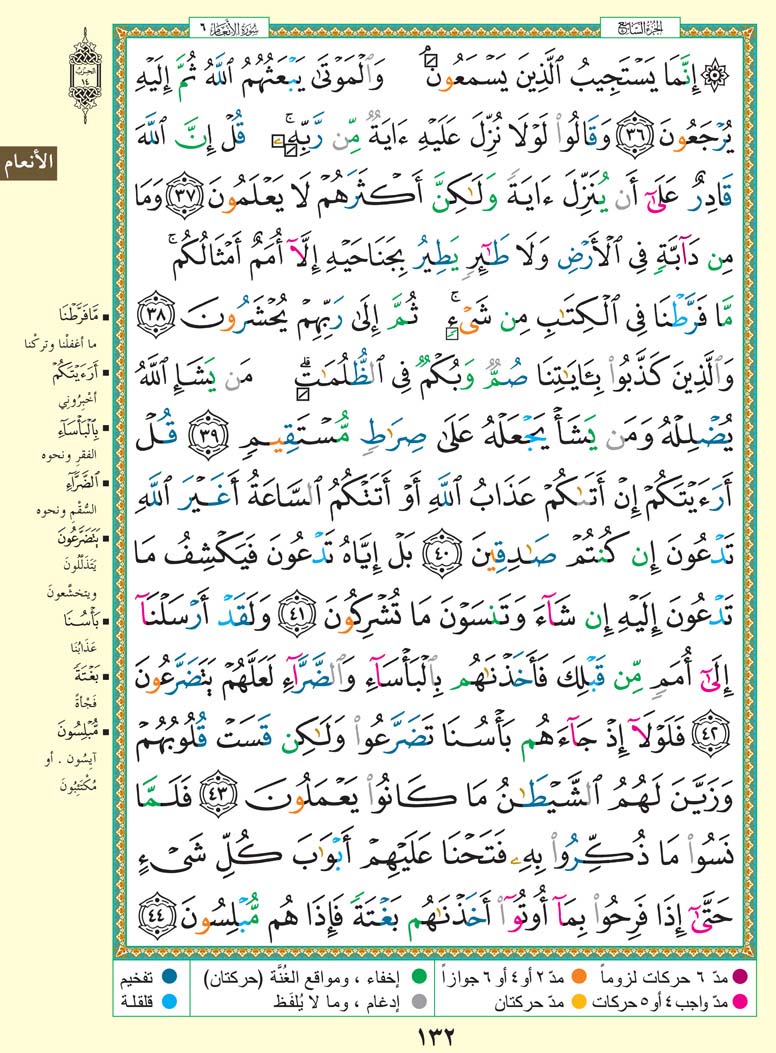 الجزء السابع
سورة الأنعام ٦
الحزب
١٤
۞ إِنَّمَا يَسْتَجِيبُ الَّذِينَ يَسْمَعُونَ ۘ وَالْمَوْتَىٰ يَبْعَثُهُمُ اللَّهُ ثُمَّ إِلَيْهِ
يُرْجَعُونَ ٣٦ وَقَالُوا لَوْلَا نُزِّلَ عَلَيْهِ ءَايَةٌ مِّن رَّبِّهِۦ ۚ قُلْ إِنَّ اللَّهَ
قَادِرٌ عَلَىٰٓ أَن يُنَزِّلَ ءَايَةً وَلَٰكِنَّ أَكْثَرَهُمْ لَا يَعْلَمُونَ ٣٧ وَمَا
مِن دَآبَّةٍ فِي الْأَرْضِ وَلَا طَٰٓئِرٍ يَطِيرُ بِجَنَاحَيْهِ إِلَّآ أُمَمٌ أَمْثَالُكُم ۚ
مَّا فَرَّطْنَا فِي الْكِتَٰبِ مِن شَيْءٍ ۚ ثُمَّ إِلَىٰ رَبِّهِمْ يُحْشَرُونَ ٣٨
وَالَّذِينَ كَذَّبُوا بِـَٔايَٰتِنَا صُمٌّ وَبُكْمٌ فِي الظُّلُمَٰتِ ۗ مَن يَشَإِ اللَّهُ
يُضْلِلْهُ وَمَن يَشَأْ يَجْعَلْهُ عَلَىٰ صِرَٰطٍ مُّسْتَقِيمٍ ٣٩ قُلْ
أَرَءَيْتَكُمْ إِنْ أَتَىٰكُمْ عَذَابُ اللَّهِ أَوْ أَتَتْكُمُ السَّاعَةُ أَغَيْرَ اللَّهِ
تَدْعُونَ إِن كُنتُمْ صَٰدِقِينَ ٤٠ بَلْ إِيَّاهُ تَدْعُونَ فَيَكْشِفُ مَا
تَدْعُونَ إِلَيْهِ إِن شَآءَ وَتَنسَوْنَ مَا تُشْرِكُونَ ٤١ وَلَقَدْ أَرْسَلْنَآ
إِلَىٰٓ أُمَمٍ مِّن قَبْلِكَ فَأَخَذْنَٰهُم بِالْبَأْسَآءِ وَالضَّرَّآءِ لَعَلَّهُمْ يَتَضَرَّعُونَ
٤٢ فَلَوْلَآ إِذْ جَآءَهُم بَأْسُنَا تَضَرَّعُوا وَلَٰكِن قَسَتْ قُلُوبُهُمْ
وَزَيَّنَ لَهُمُ الشَّيْطَٰنُ مَا كَانُوا يَعْمَلُونَ ٤٣ فَلَمَّا
نَسُوا مَا ذُكِّرُوا بِهِۦ فَتَحْنَا عَلَيْهِمْ أَبْوَٰبَ كُلِّ شَيْءٍ
حَتَّىٰٓ إِذَا فَرِحُوا بِمَآ أُوتُوٓا أَخَذْنَٰهُم بَغْتَةً فَإِذَا هُم مُّبْلِسُونَ ٤٤
الأنعام
■ مَّا فَرَّطْنَا
ما أغفلْنا وتركْنا
■ أَرَءَيْتَكُمْ
أخْبِرُوني
■ بِالْبَأْسَآءِ
الفقرِ ونحوه
■ الضَّرَّآءِ
السُّقْمِ ونحوه
■ يَتَضَرَّعُونَ
يَتَذَلَّلُونَ
ويتخشَّعونَ
■ بَأْسُنَا
عَذَابُنَا
■ بَغْتَةً
فَجْأةً
■ مُّبْلِسُونَ
آيِسُون . أو
مُكْتَئِبُونَ
● مدّ ٦ حركات لزوماً ● مدّ ٢ أو ٤ أو ٦ جوازاً ● إخفاء ، ومواقع الغُنَّة (حركتان) ● تفخيم
● مدّ واجب ٤ أو ٥ حركات ● مدّ حركتان ● إدغام ، وما لا يُلفَظ ● قلقلة
١٣٢